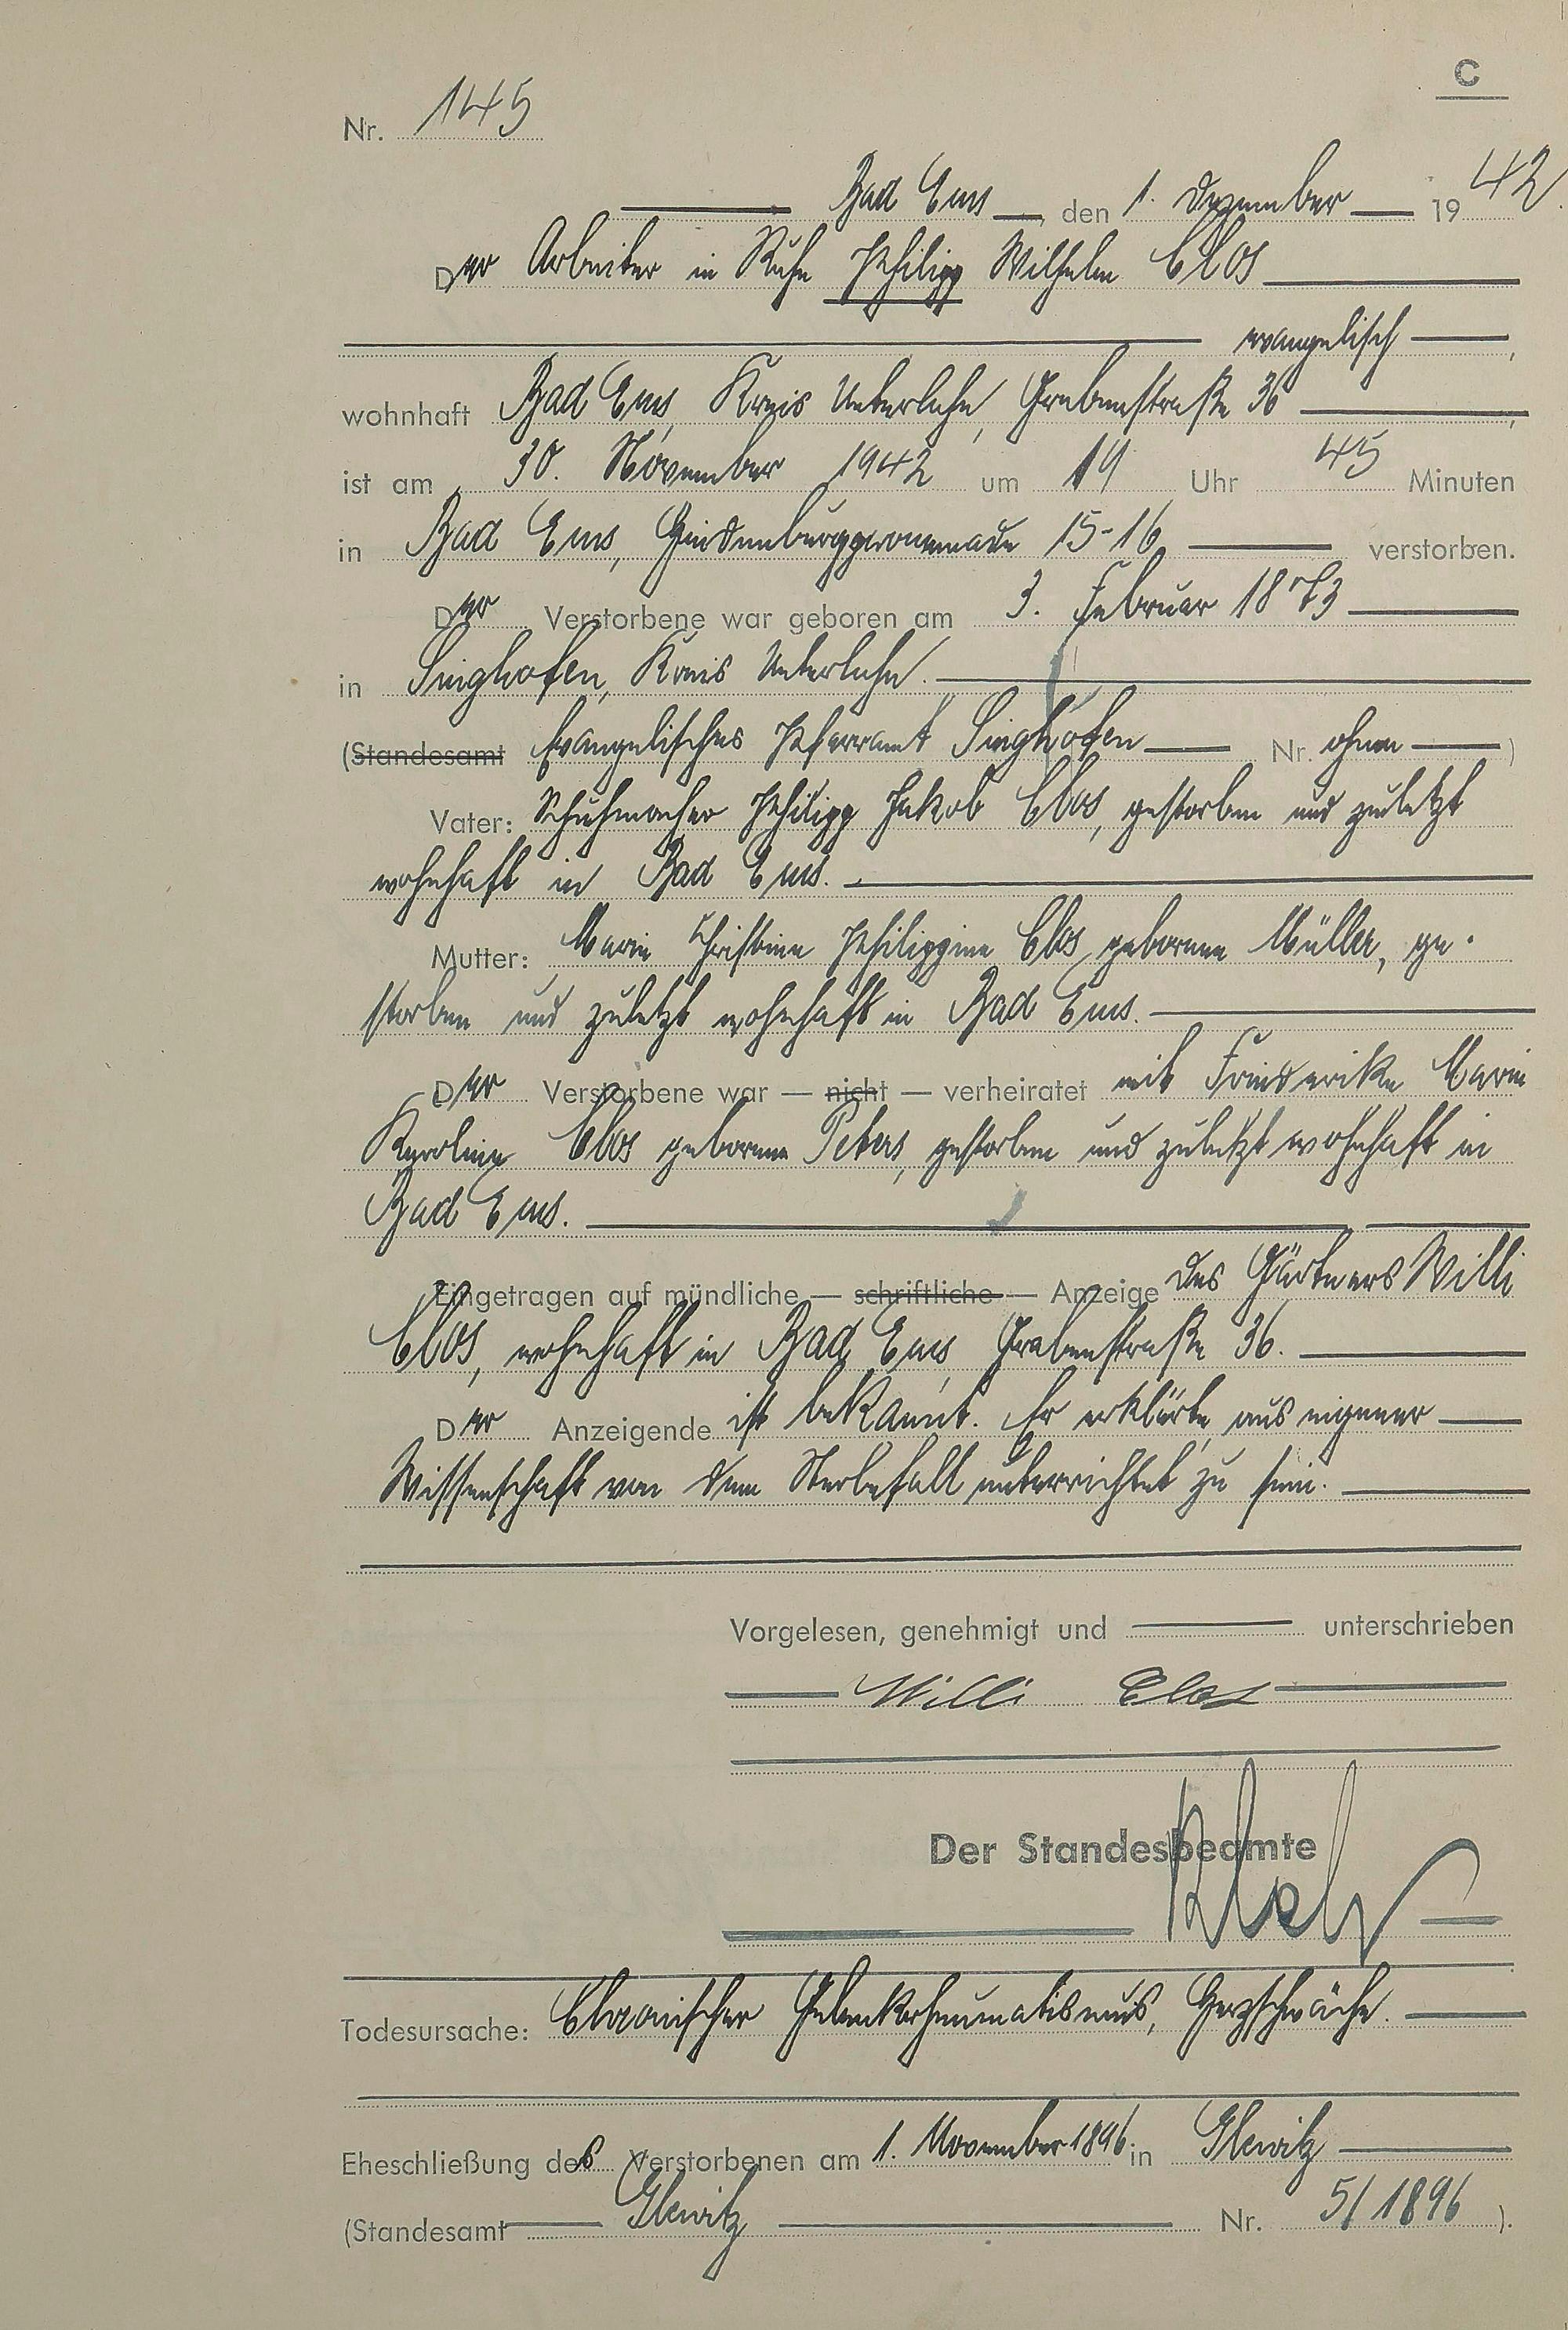 C
Nr. 145
Bad Ems, den 1. Dezember 1942.
Der Arbeiter in Ruhe Philipp Wilhelm Clos
evangelisch,
wohnhaft Bad Ems, Kreis Unterlahn, Grabenstraße 36,
ist am 30. November 1942 um 19 Uhr 45 Minuten
in Bad Ems, Hindenburgpromenade 15-16 verstorben.
Der Verstorbene war geboren am 3. Februar 1873
in Singhofen, Kreis Unterlahn.
(Standesamt Evangelisches Pfarramt Singhofen Nr. ohne)
Vater: Schuhmacher Philipp Jakob Clos, gestorben und zuletzt
wohnhaft in Bad Ems.
Mutter: Marie Christine Philippine Clos geborene Müller, ge-
storben und zuletzt wohnhaft in Bad Ems.
Der Verstorbene war — nicht — verheiratet mit Friederike Marie
Karoline Clos geborene Peters, gestorben und zuletzt wohnhaft in
Bad Ems.
Eingetragen auf mündliche — schriftliche — Anzeige des Gärtners Willi
Clos, wohnhaft in Bad Ems, Grabenstraße 36.
Der Anzeigende ist bekannt. Er erklärte, aus eigener
Wissenschaft von dem Sterbefall unterrichtet zu sein.
Vorgelesen, genehmigt und unterschrieben
Willi Clos
Der Standesbeamte
Todesursache: Chronischer Gelenkrheumatismus, Herzschwäche.
Eheschließung des Verstorbenen am 1. November 1896 in Glewitz
(Standesamt Glewitz Nr. 5/1896).